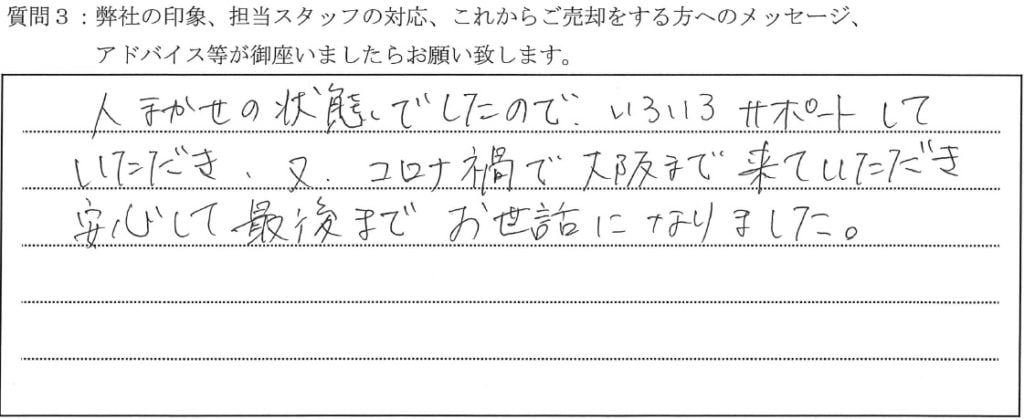 質問３：弊社の印象、担当スタッフの対応、これからご売却をする方へのメッセージ、
アドバイス等が御座いましたらお願い致します。
人まかせの状態でしたので、いろいろサポートして
いただき、又、コロナ禍で大阪まで来ていただき
安心して最後までお世話になりました。